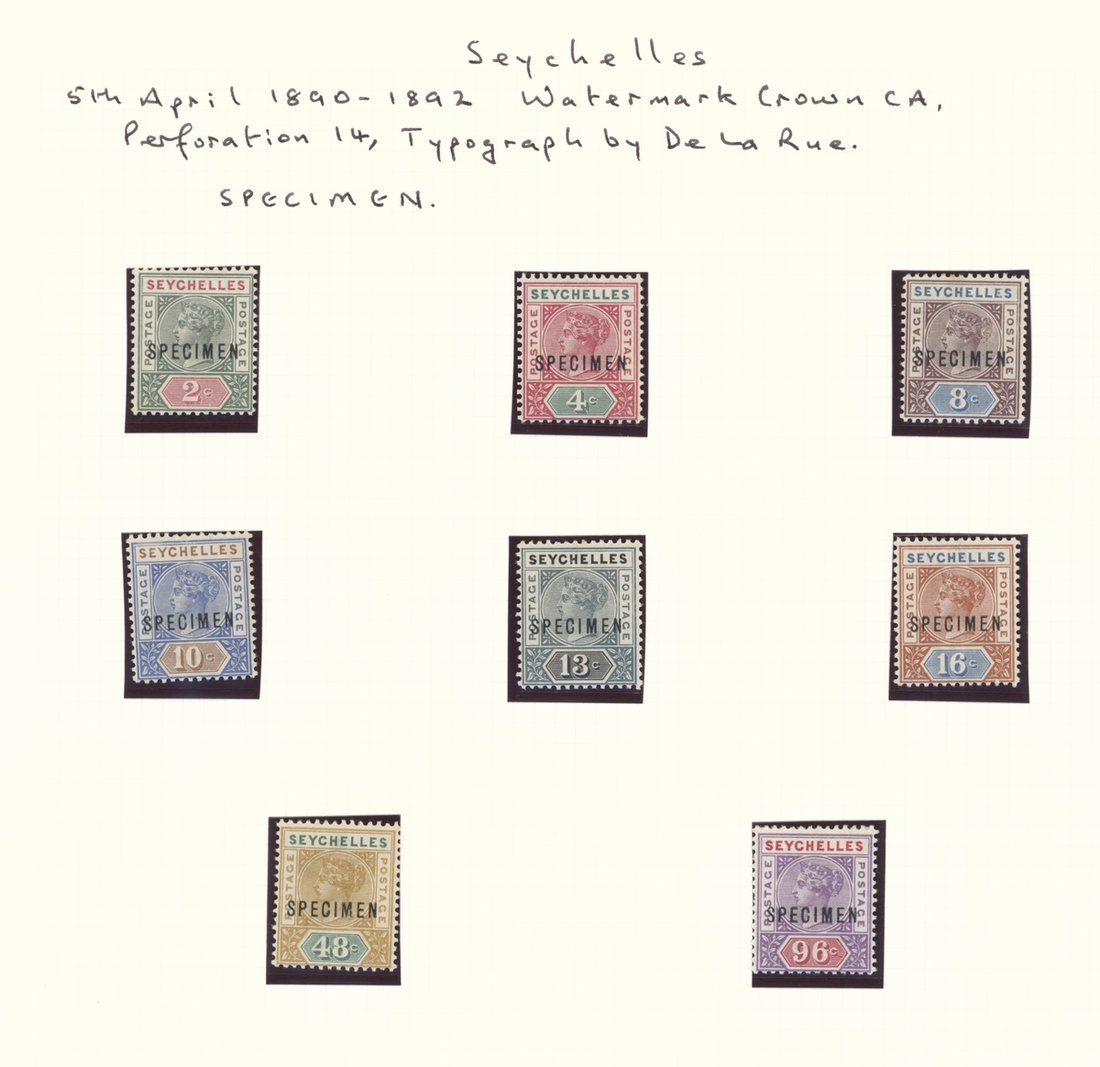 Seychelles
5th April 1890-1892 Watermark Crown CA,
Perforation 14, Typograph by De La Rue.
SPECIMEN.
SEYCHELLES
POSTAGE
POSTAGE
SPECIMEN
2c
SEYCHELLES
POSTAGE
POSTAGE
SPECIMEN
4c
SEYCHELLES
POSTAGE
POSTAGE
SPECIMEN
8c
SEYCHELLES
POSTAGE
POSTAGE
SPECIMEN
10c
SEYCHELLES
POSTAGE
POSTAGE
SPECIMEN
13c
SEYCHELLES
POSTAGE
POSTAGE
SPECIMEN
16c
SEYCHELLES
POSTAGE
POSTAGE
SPECIMEN
48c
SEYCHELLES
POSTAGE
POSTAGE
SPECIMEN
96c